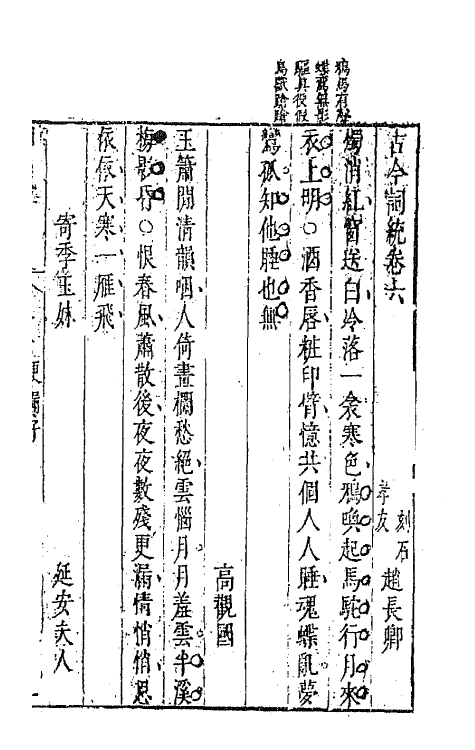 鴉馬有聲
蝶鸞無影
驅真役假
鳥獸蹌蹌
古今詞統卷六
刻石
孝友
趙長卿
燭消紅窗送白冷落一衾寒色鴉喚起馬駞行月來
衣上明○酒香唇粧印臂憶共個人人睡魂蝶亂夢
鸞孤知他睡也無
高觀國
玉簫閒清韻咽人倚畫欄愁絕雲惱月月羞雲半溪
梅影昏○恨春風蕭散後夜夜數殘更漏情悄悄思
依依天寒一雁飛
寄季玉妹 延安夫人
更漏子